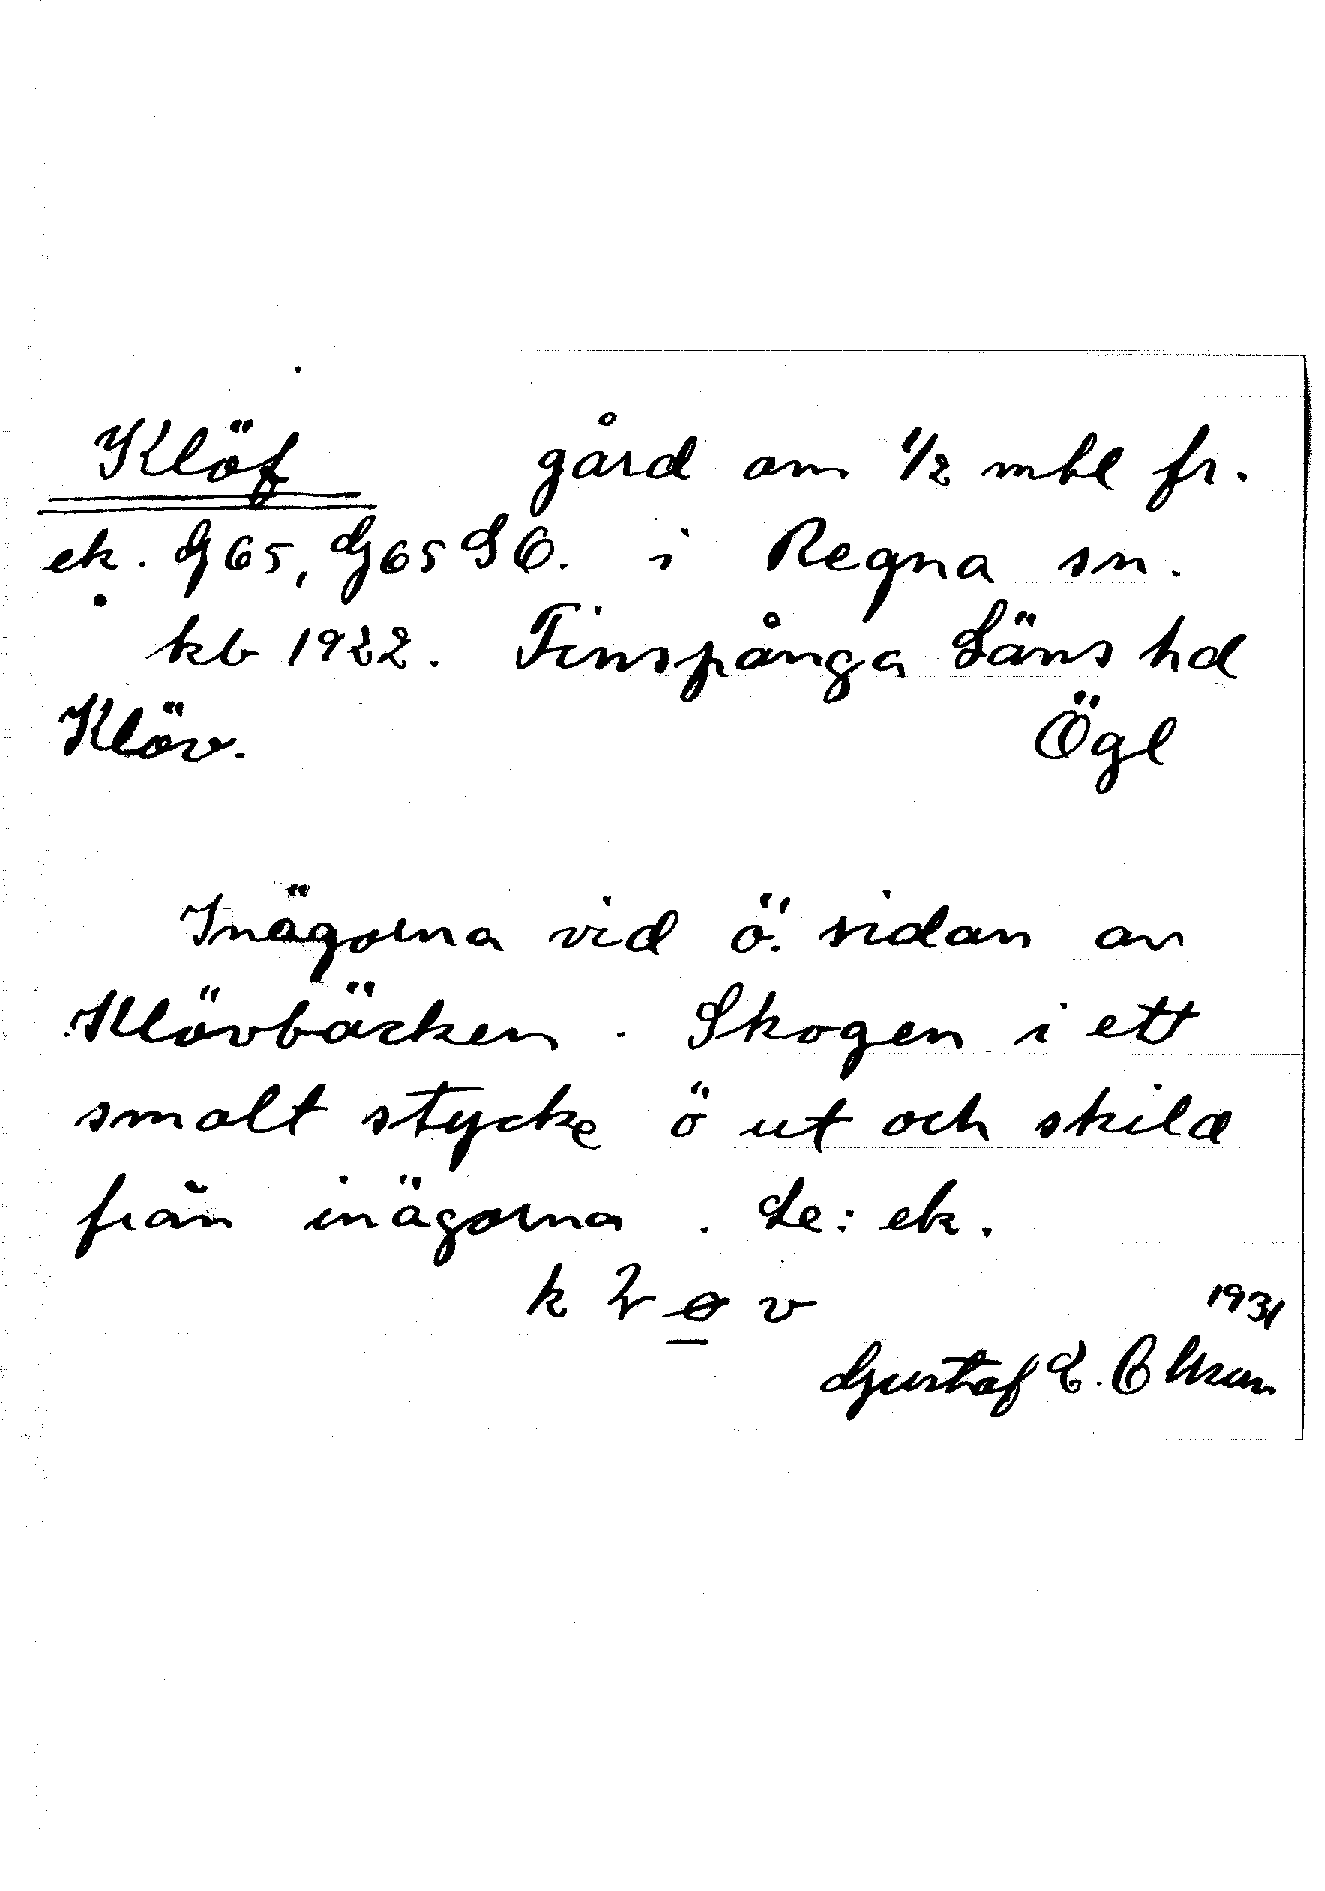 Klöf gård om 1/2 mtl fr.
ek. G65, G65SO. i Regna sn.
kb 1922. Finspånga Läns hd
Klöv. Ögl
Inägorna vid ö. sidan av
Klövbäcken. Skogen i ett
smalt stycke ö ut och skild
från inägorna. Se: ek.
1931
Gustaf E.